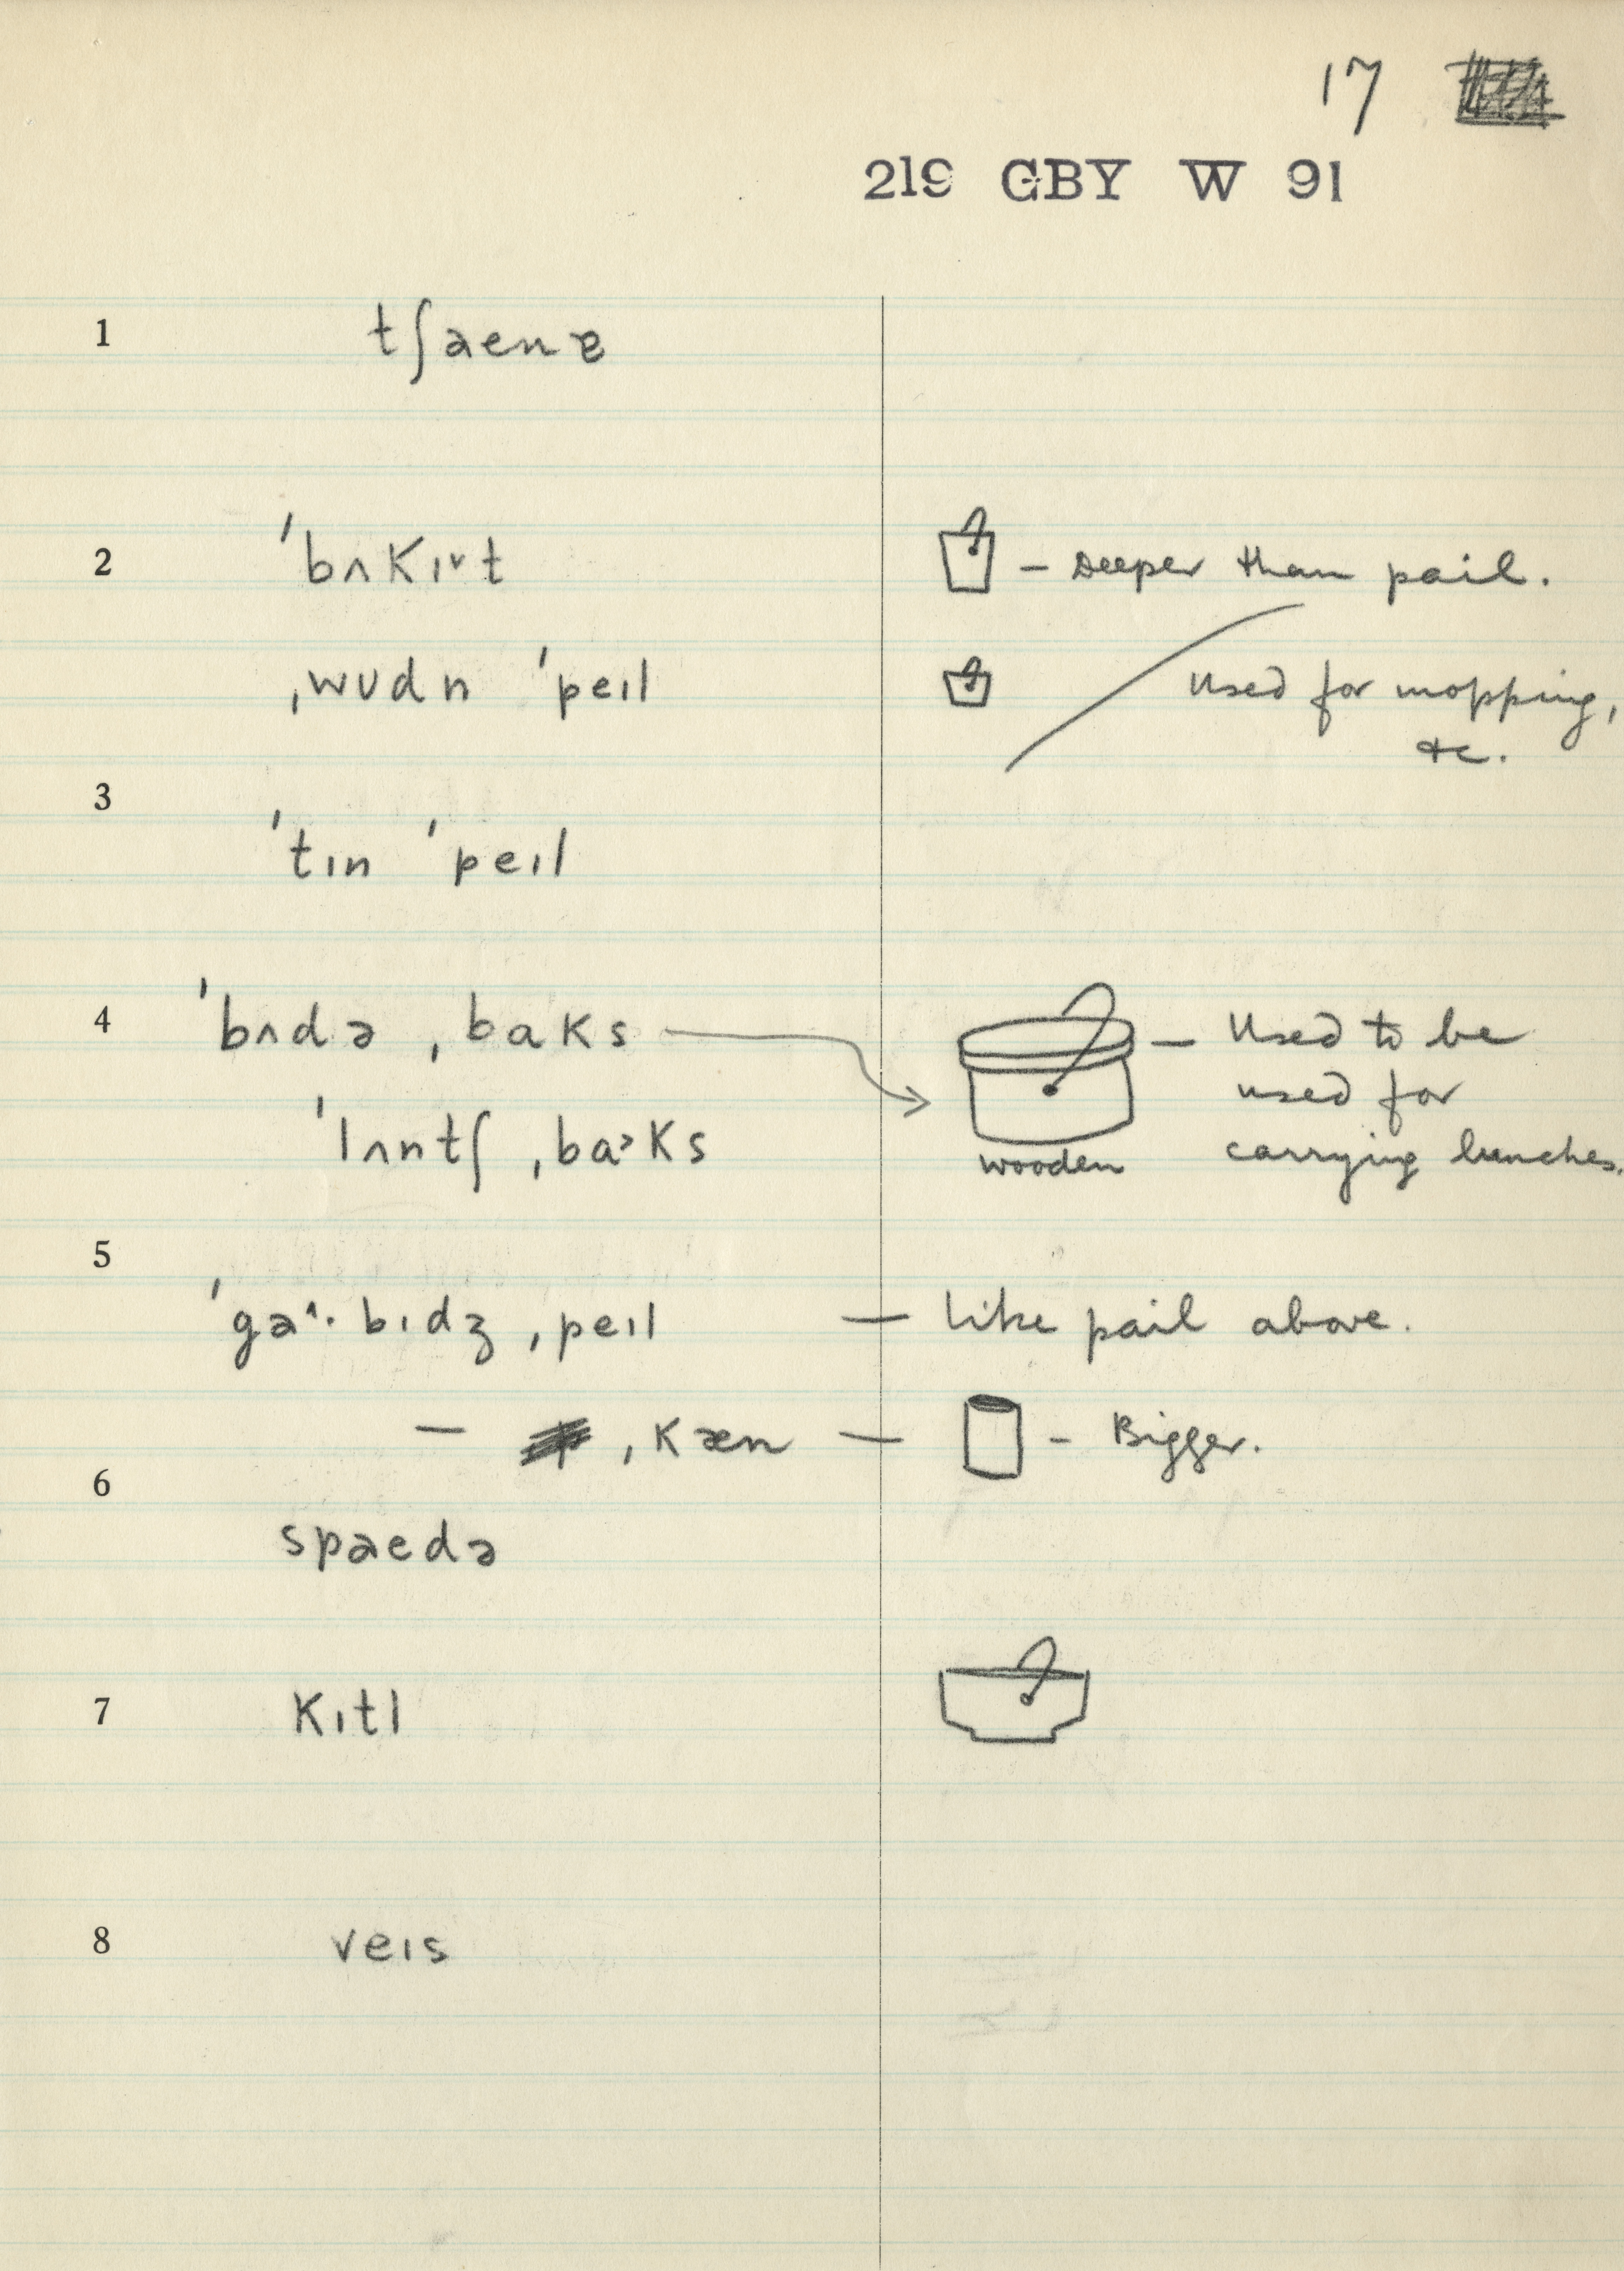 17
219 GBY W 91
1 tʃaenɐ
2 ˈbʌKɪ˅t — Deeper than pail.
ˌwʊdn ˈpeɪl Used for mopping,
etc.
3
ˈtɪn ˈpeɪl
4 ˈbʌdə ˌbaKs — Used to be
used for
ˈlʌntʃ ˌba˃Ks wooden carrying lunches.
5
ˈga˄· bɪdʒ ˌpeɪl — Like pail above.
— ˌKæn — – Bigger.
6
spaedə
7 Kɪtl
8 veɪs